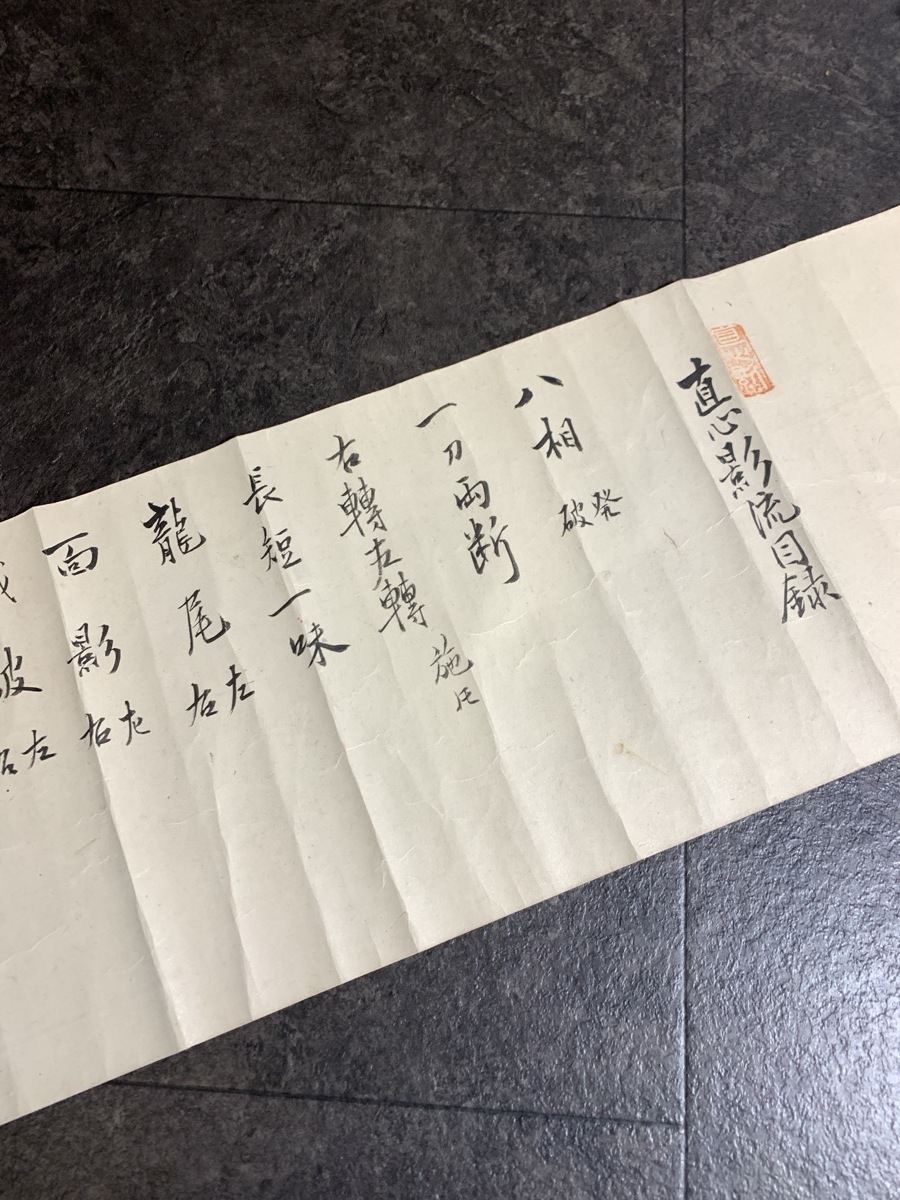 直心影流目録
八相 発
破
一刀両断
右轉左轉 施
長短一味
龍尾 左
右
面影 左
右
破 左
右